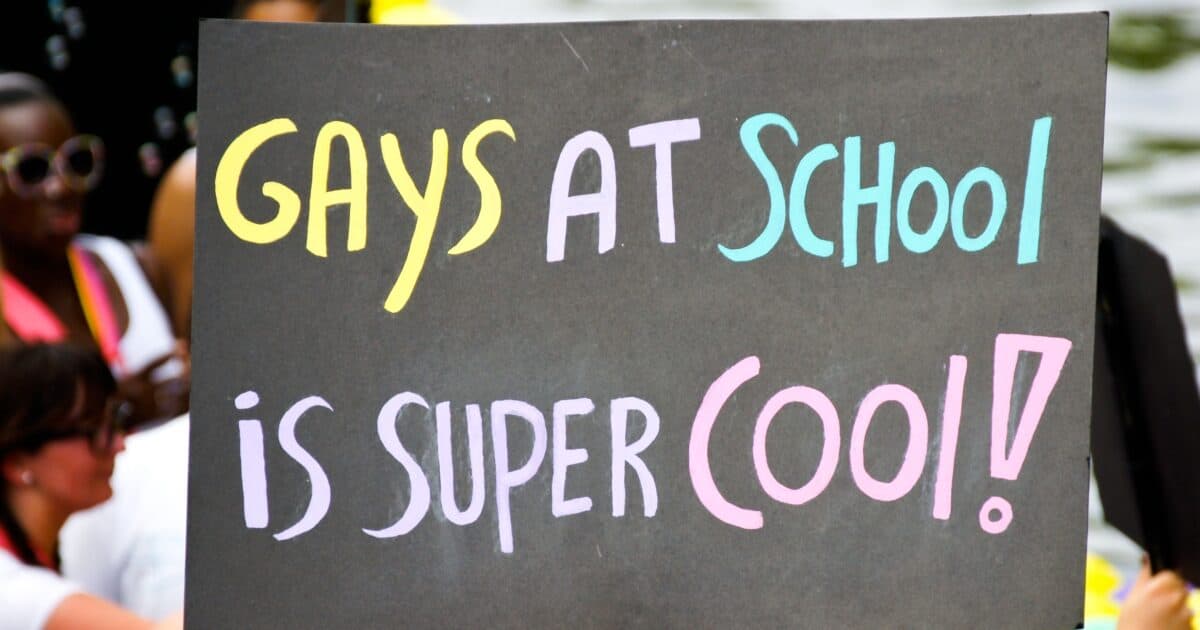 GAYS AT SCHOOL
iS SUPER COOL!